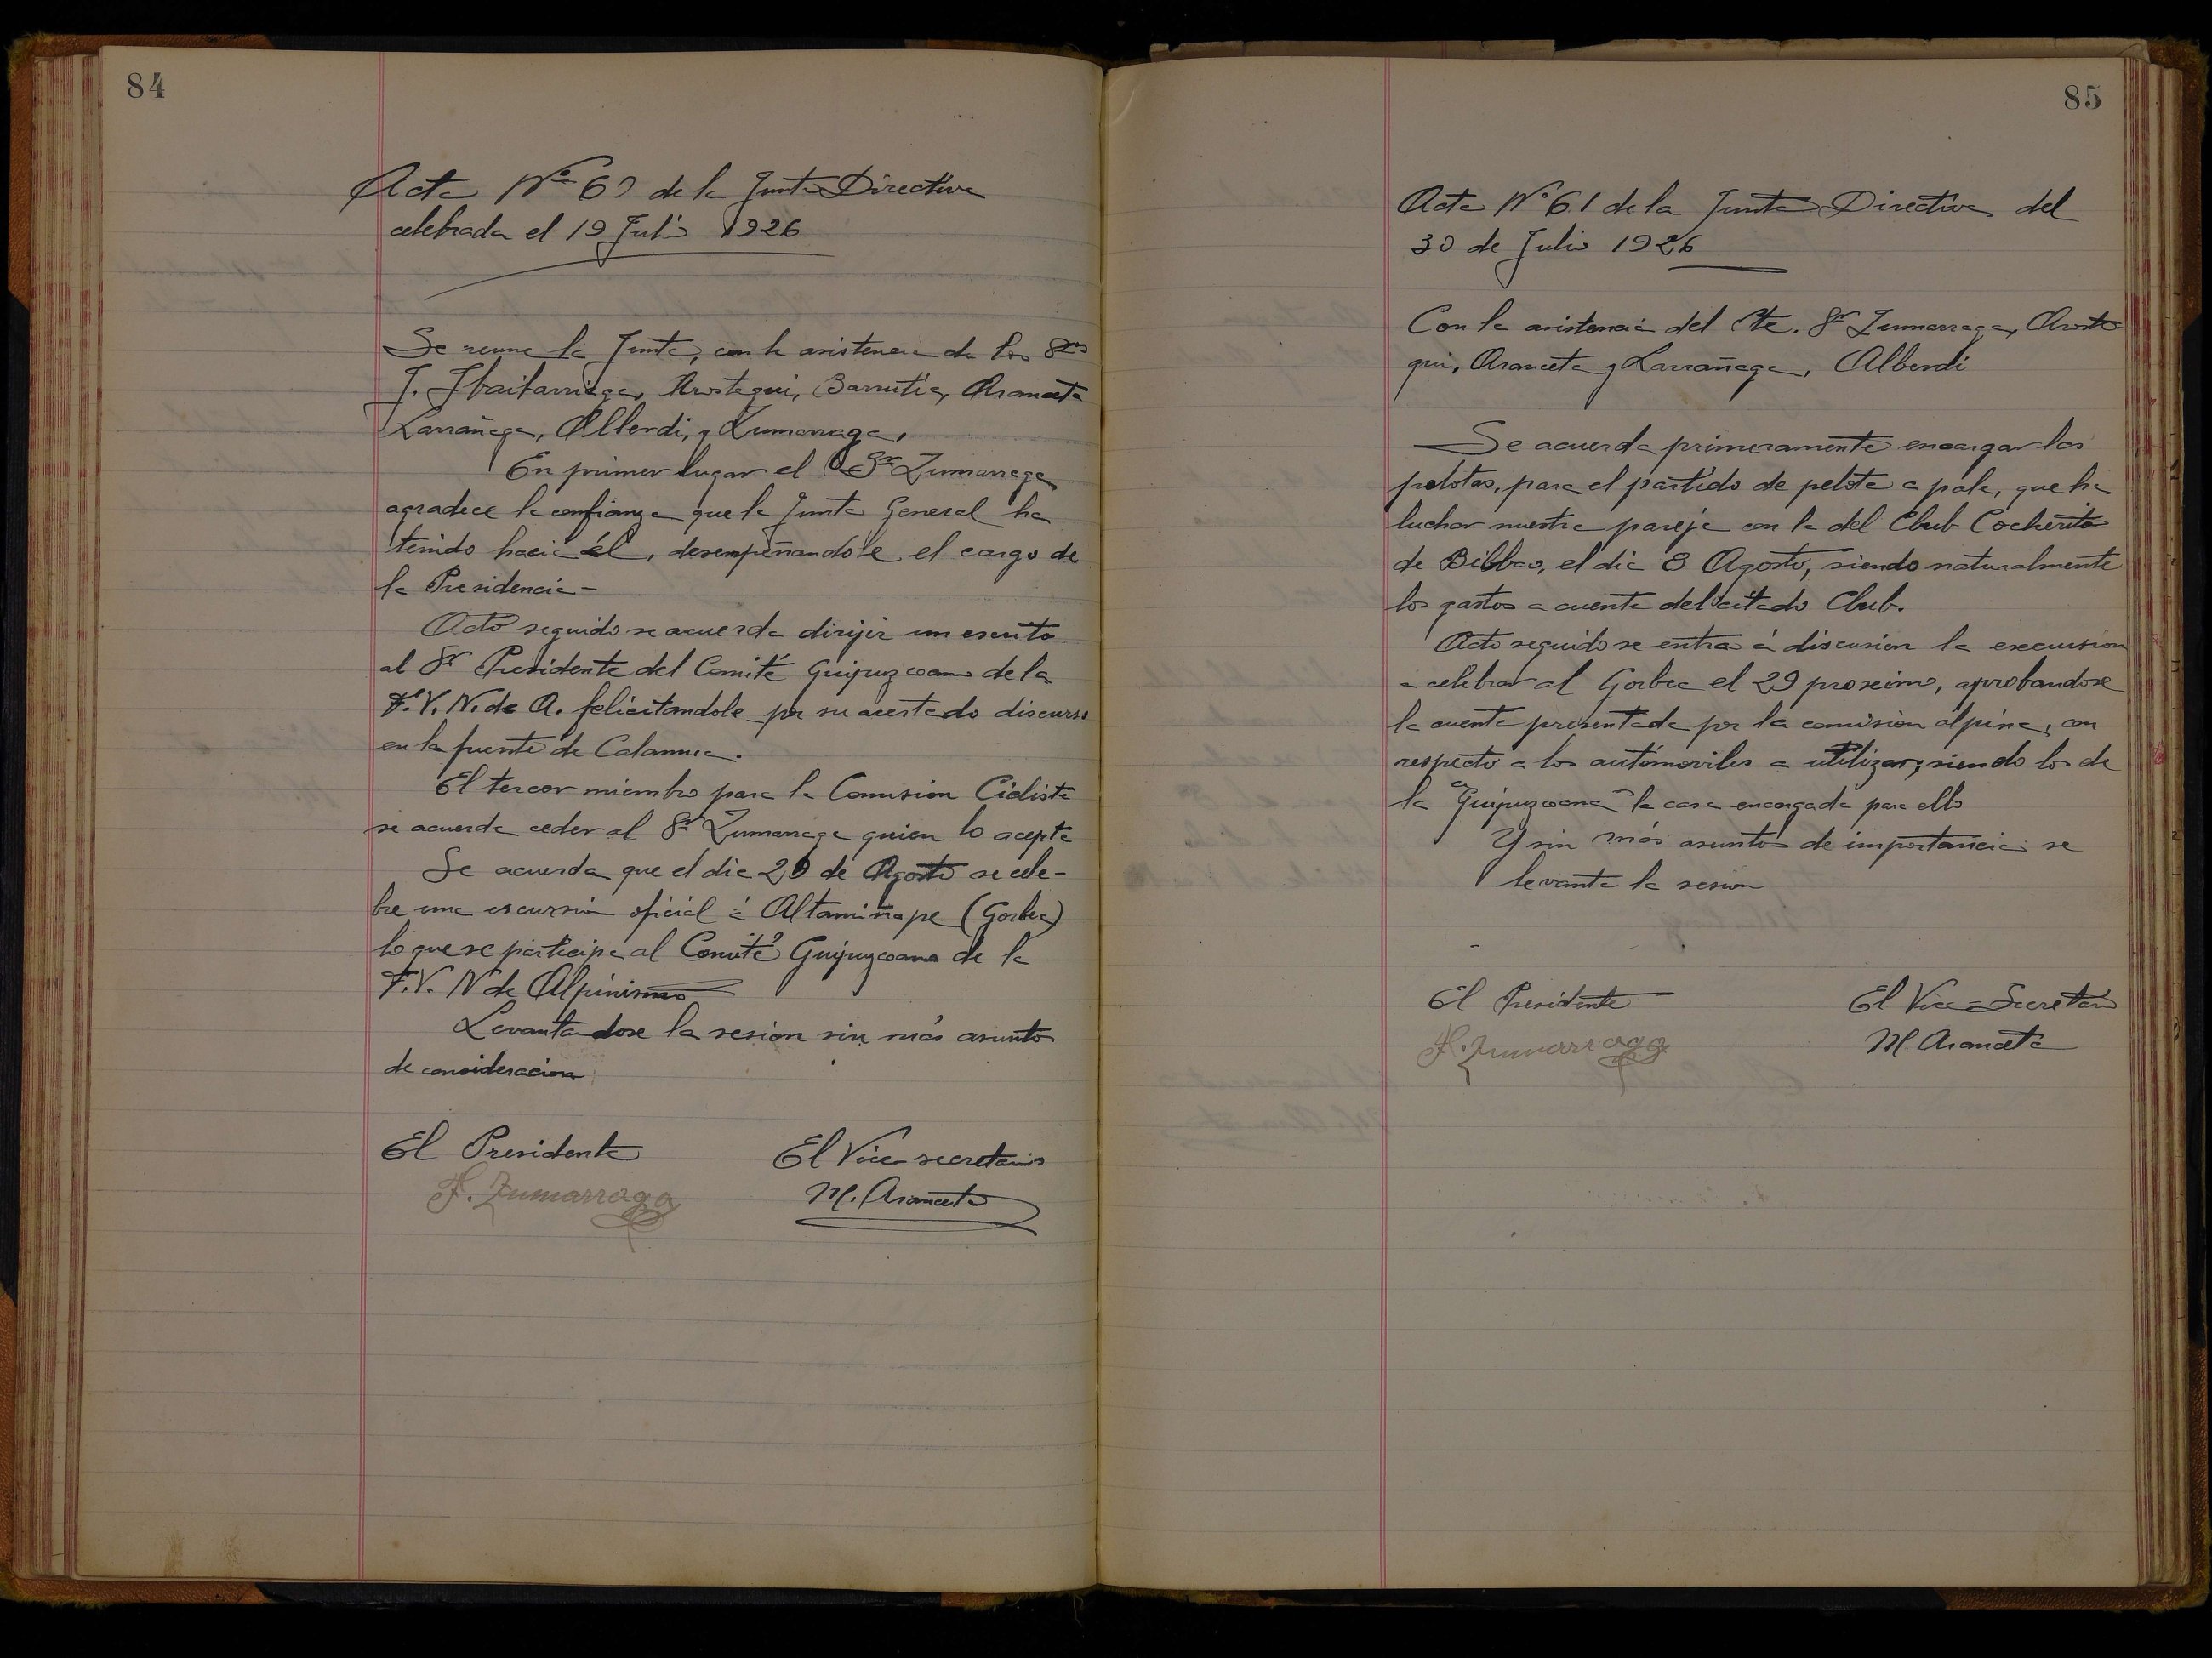 84
Acta Nº 60 de la Junta Directiva
celebrada el 19 Julio 1926
Se reune la Junta, con la asistencia de los Sres
J. Ibaibarriaga, Arostegui, Barrutia, Aranceta
Larrañaga, Alberdi, y Zumarraga,
En primer lugar el Sr Zumarraga
agradece la confianza que la Junta General ha
tenido hacia él, desempeñandole el cargo de
la Presidencia-
Acto seguido se acuerda dirijir un escrito
al Sr Presidente del Comité Guipuzcoano de la
F. V. N. de A. felicitandole por su acertado discurso
en la fuente de Calamua.
El tercer miembro para la Comision Ciclista
se acuerda ceder al Sr Zumarraga quien lo acepta
Se acuerda que el dia 29 de Agosto se cele-
bre una escursion oficial á Altamiñape (Gorbea)
lo que se participa al Comité Guipuzcoano de la
F. V. N de Alpinismo
Levantandose la sesion sin más asunto
de consideracion
El Presidente
El Vice secretario
F. Zumarraga
M. Aranceta
85
Acta Nº 61 de la Junta Directiva del
30 de Julio 1926
Con la asistencia del Pte. Sr Zumarraga, Aroste
gui, Aranceta y Larrañaga, Alberdi
Se acuerda primeramente encargar las
pelotas, para el partido de pelota a pala, que ha
luchar nuestra pareja con la del Club Cocherito
de Bilbao, el dia 8 Agosto, siendo naturalmente
los gastos a cuenta del citado Club.
Acto seguido se entra á discusion la excursion
a celebrar al Gorbea el 29 proximo, aprobandose
la cuenta presentada por la comisión alpina, con
respecto a los automoviles a utilizar; siendo los de
la "Guipuzcoana" la casa encargada para ello
Y sin más asuntos de importancia se
levanta la sesion
El Presidente
El Vice-Secretario
F. Zumarraga
M. Aranceta